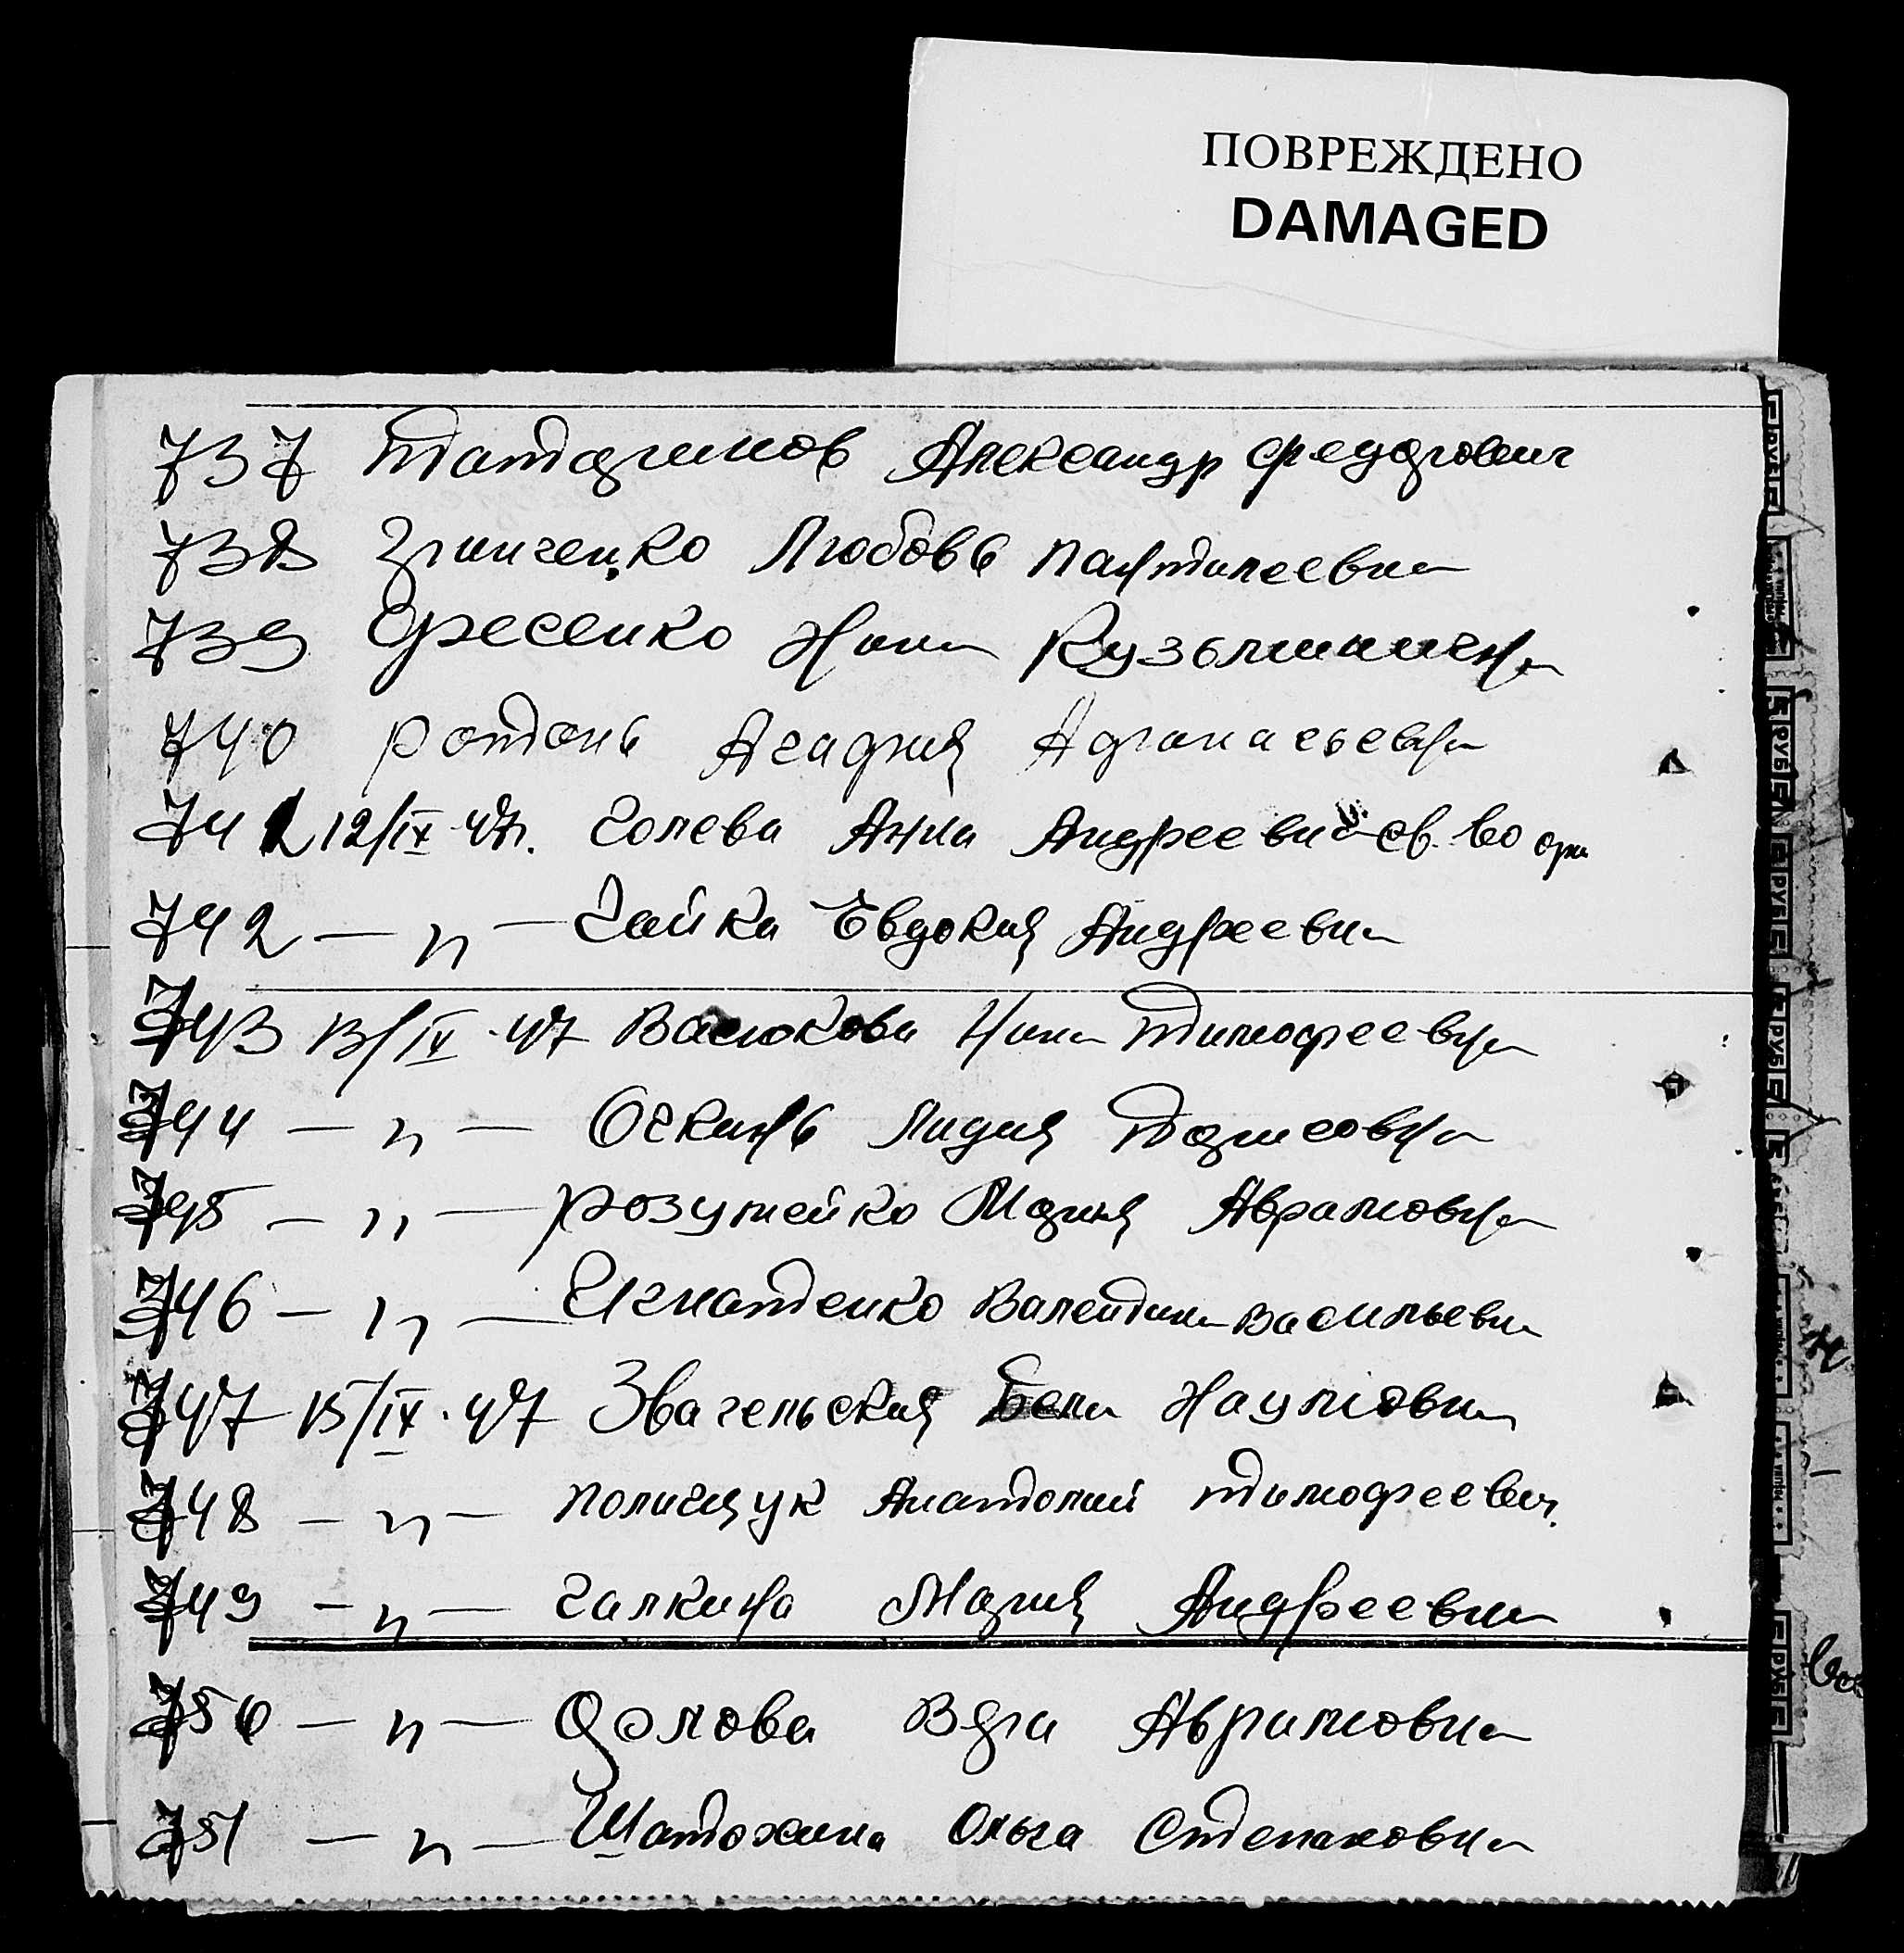 ПОВРЕЖДЕНО
DAMAGED
737 Татаринов Александр Федорович
738 Гринченко Любовь Пантилеевна
739 Фесенко Нина Кузьминична
740 Ротань Агафия Афанасьевна
741 12/IX-47г. Голева Анна Андреевна св. во
742 — " — Гайка Евдокия Андреевна
743 13/IX-47 Васюкова Нина Тимофеевна
744 — " — Очкань Лидия Борисовна
745 — " — Розумейко Мария Аврамовна
746 — " — Игнатенко Валентина Васильевна
747 15/IX-47 Звагельская Бела Наумовна
748 — " — Полищук Анатолий Тимофеевич.
749 — " — Галкина Мария Андреевна
750 — " — Фомова Вера Аврамовна
751 — " — Шатохина Ольга Степановна